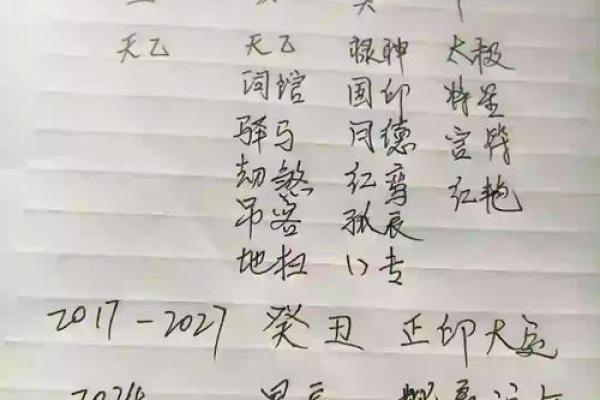 天乙 天乙 禄神 太极
词馆 国印 将星
驿马 月德 宫
劫煞 红鸾 红艳
吊客 孤辰
地扫 八专
2017-2027 癸丑 正印大运